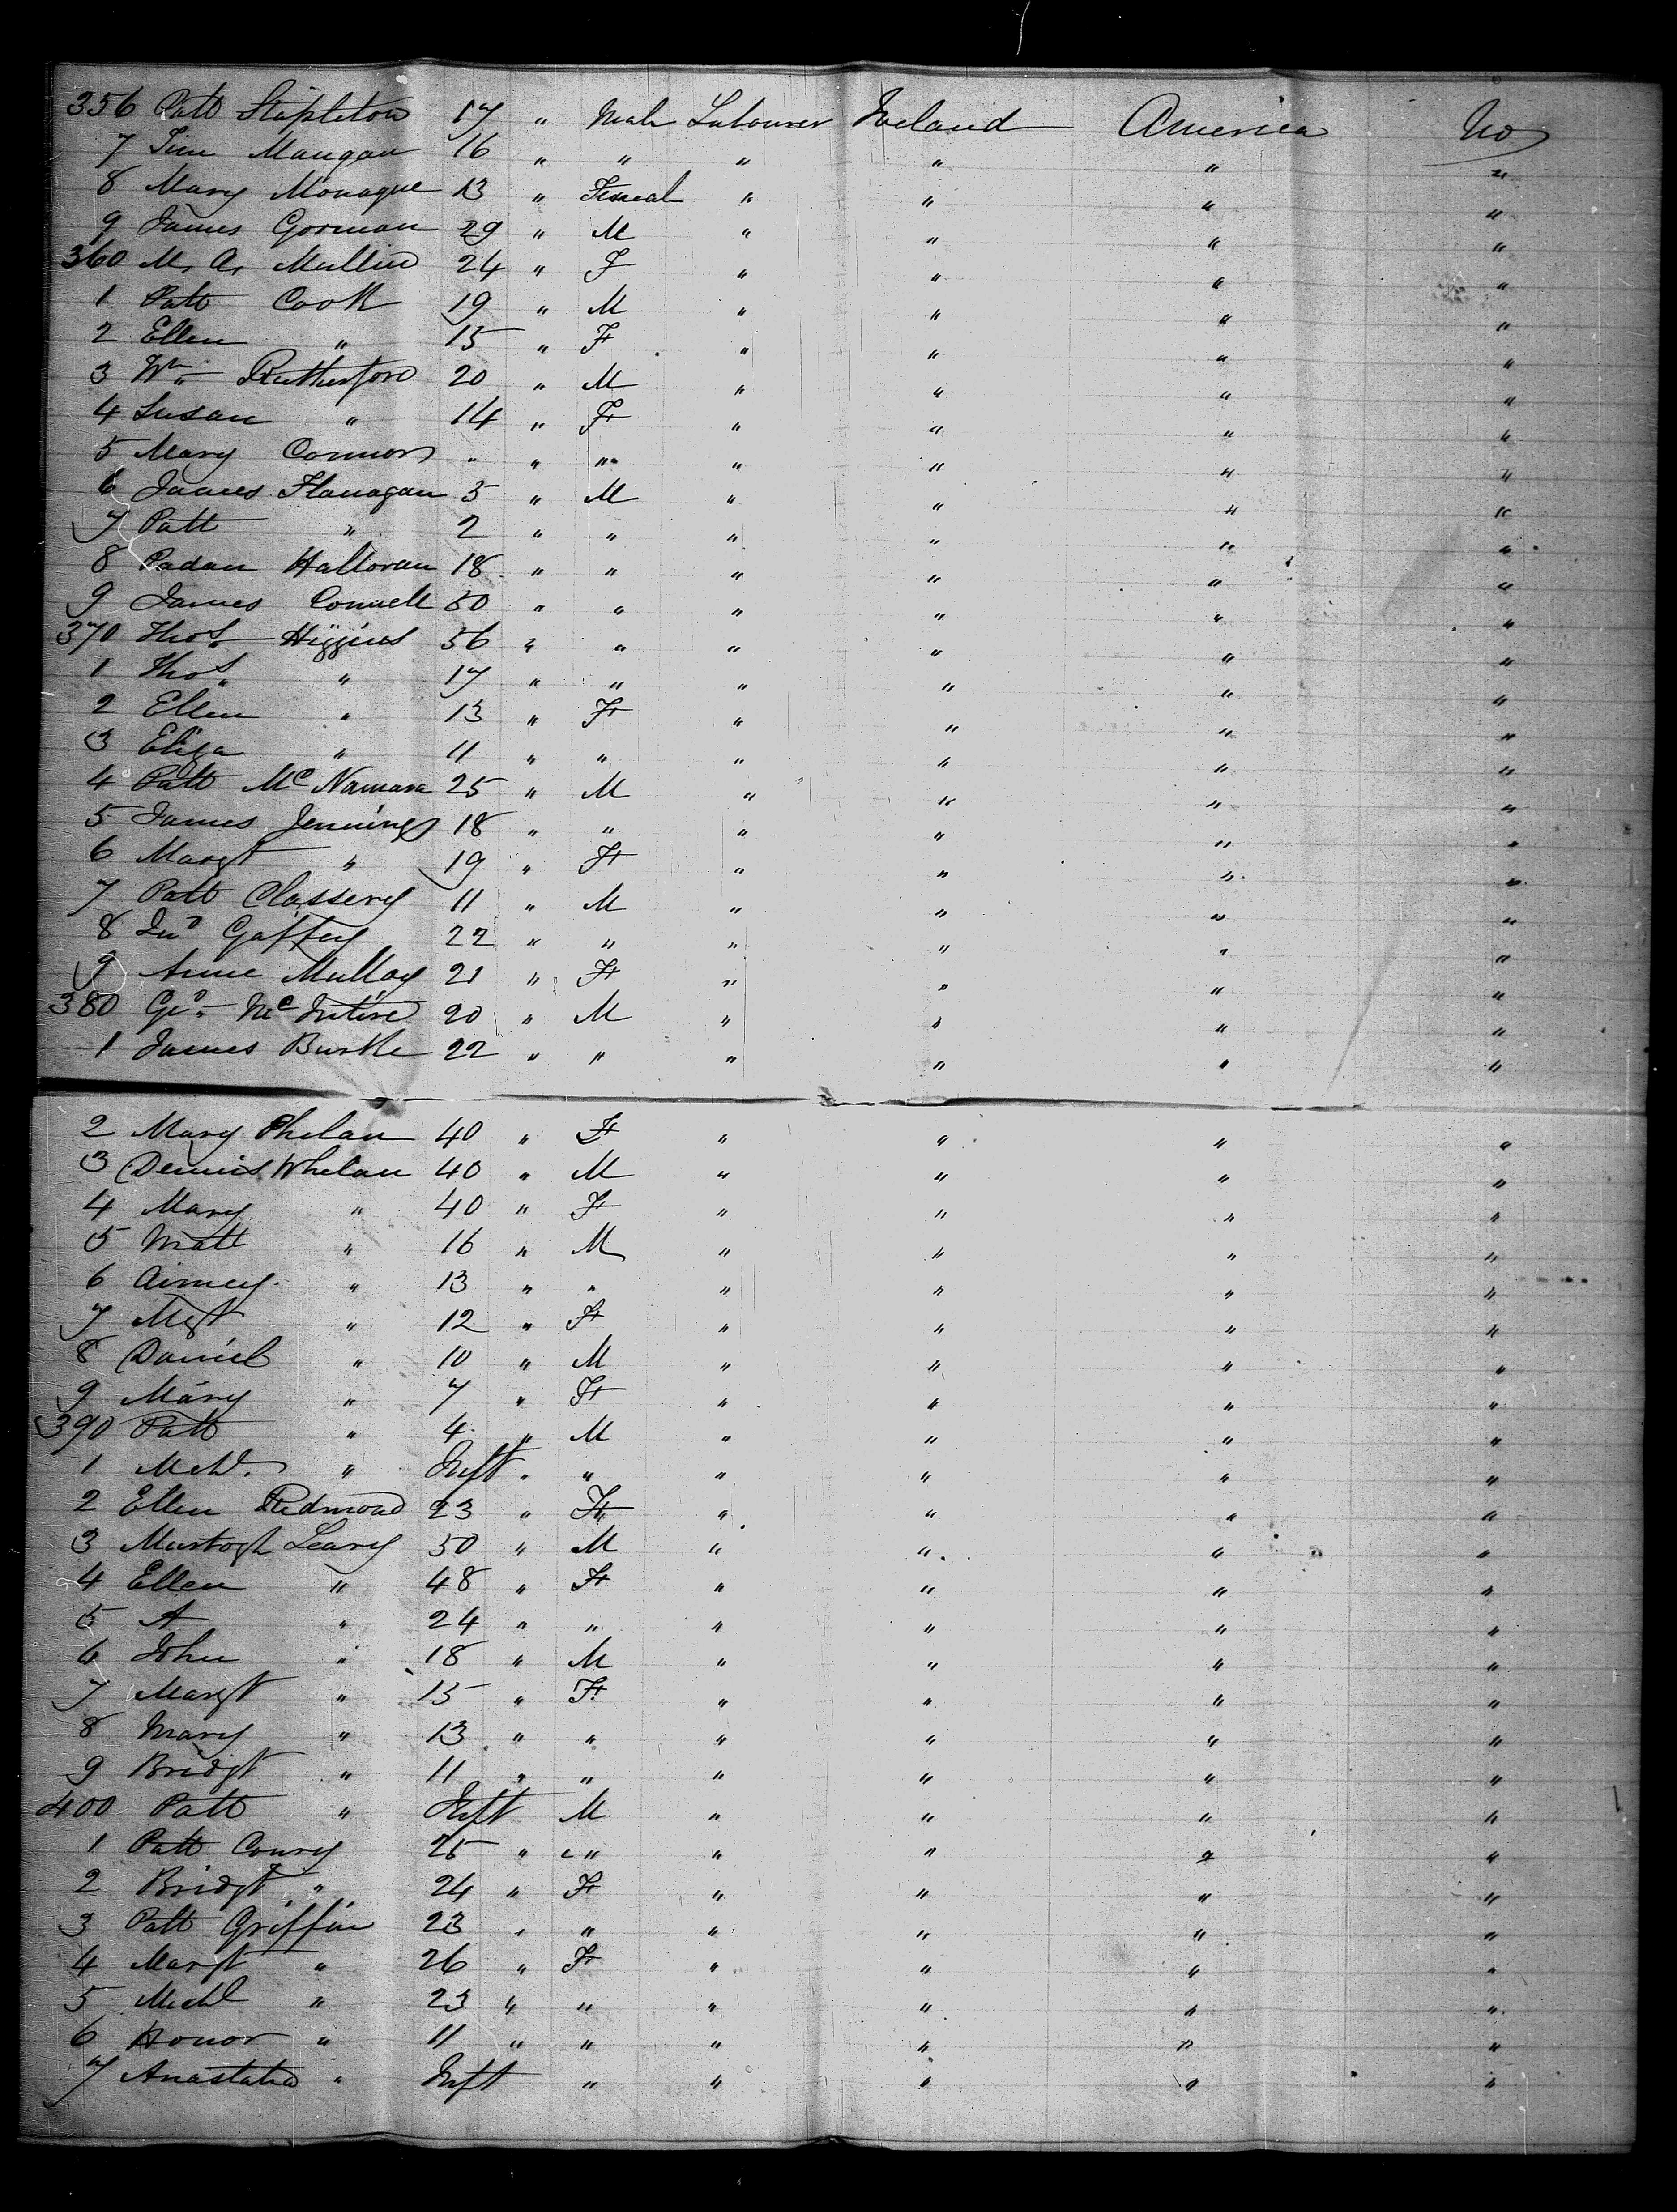 356 Patt Stapleton 17 " Male Labourer Ireland America No
7 Tim Mangan 16 " " " " " "
8 Mary Monague 13 " Femeal " " " "
9 James Gorman 29 " M " " " "
360 M. A. Mullin 24 " F " " " "
1 Patt Cook 19 " M " " " "
2 Ellen " 15 " F " " " "
3 Wm Rutherford 20 " M " " " "
4 Susan " 14 " F " " " "
5 Mary Connors " " " " " " "
6 James Flanagan 5 " M " " " "
7 Patt " 2 " " " " " "
8 Padan Halloran 18 " " " " " "
9 James Connell 50 " " " " " "
370 Thos Higgins 56 " " " " " "
1 Thos " 17 " " " " " "
2 Ellen " 13 " F " " " "
3 Eliza " 11 " " " " " "
4 Patt McNamara 25 " M " " " "
5 James Jennings 18 " " " " " "
6 Margt " 19 " F " " " "
7 Patt Classery 11 " M " " " "
8 Jno Gaffey 22 " " " " " "
9 Anne Mulloy 21 " F " " " "
380 Geo McIntire 20 " M " " " "
1 James Burke 22 " " " " " "
2 Mary Phelan 40 " F " " " "
3 Dennis Whelan 40 " M " " " "
4 Mary " 40 " F " " " "
5 Matt " 16 " M " " " "
6 " 13 " " " " " "
7 Mgt " 12 " F " " " "
8 Daniel " 10 " M " " " "
9 Mary " 7 " F " " " "
390 Patt " 4 " M " " " "
1 Mchl. " Inft " " " " " "
2 Ellen Redmond 23 " F " " " "
3 Murtogh Leary 50 " M " " " "
4 Ellen " 48 " F " " " "
5 A " 24 " " " " " "
6 John " 18 " M " " " "
7 Margt " 15 " F " " " "
8 Mary " 13 " " " " " "
9 Bridgt " 11 " " " " " "
400 Patt " Inft M " " " "
1 Patt Conry 25 " " " " " "
2 Bridgt " 24 " F " " " "
3 Patt Griffin 23 " " " " " "
4 Margt " 26 " F " " " "
5 Michl " 23 " " " " " "
6 Honor " 11 " " " " " "
7 Anastatia " Inft " " " " "